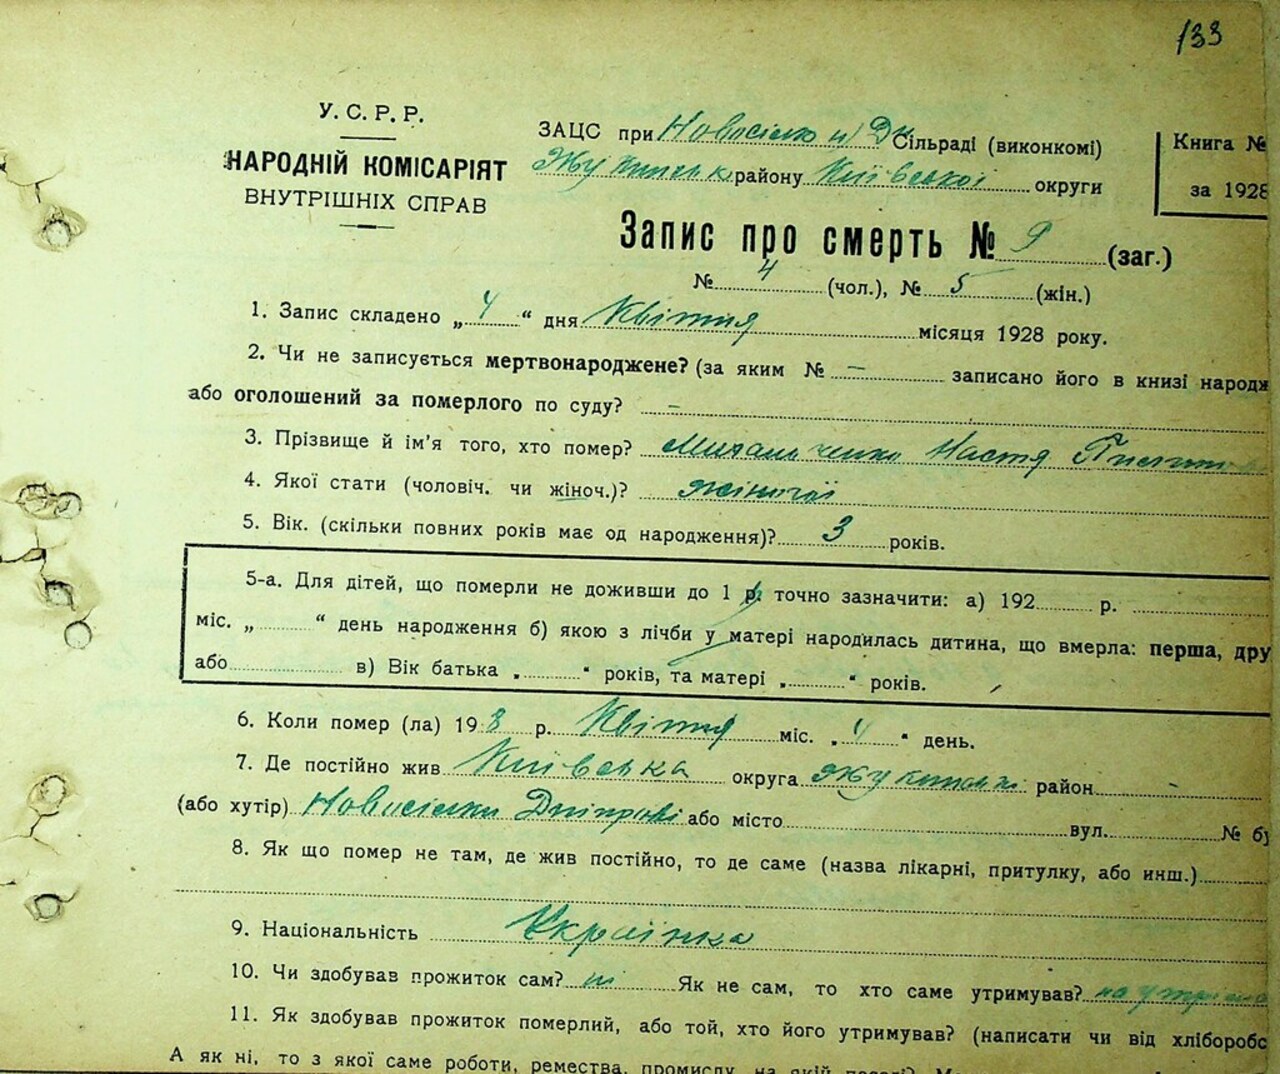 133
У. С. Р. Р.
НАРОДНІЙ КОМІСАРІЯТ
ВНУТРІШНІХ СПРАВ
ЗАЦС при Новосілки Дн Сільраді (виконкомі)
району Київської округи
Книга №
за 1928
Запис про смерть № 9 (заг.)
№ 4 (чол.), № 5 (жін.)
1. Запис складено „ 4 “ дня Квітня місяця 1928 року.
2. Чи не записується мертвонароджене? (за яким № – записано його в книзі народж
або оголошений за померлого по суду? –
3. Прізвище й ім’я того, хто помер? Михальченко Настя
4. Якої стати (чоловіч. чи жіноч.)? жіночої
5. Вік. (скільки повних років має од народження)? 3 років.
5-а. Для дітей, що померли не доживши до 1 р. точно зазначити: а) 192 р.
міс. „ “ день народження б) якою з лічби у матері народилась дитина, що вмерла: перша, дру
або в) Вік батька „ “ років, та матері „ “ років.
6. Коли помер (ла) 19 8 р. Квітня міс. „ 4 “ день.
7. Де постійно жив Київська округа район -
(або хутір) Новосілки Дніпрові або місто вул. № бу
8. Як що помер не там, де жив постійно, то де саме (назва лікарні, притулку, або инш.)
9. Національність Українка
10. Чи здобував прожиток сам? ні Як не сам, то хто саме утримував?
11. Як здобував прожиток померлий, або той, хто його утримував? (написати чи від хліборобс
А як ні, то з якої саме роботи, ремества, промислу, на якій посаді?